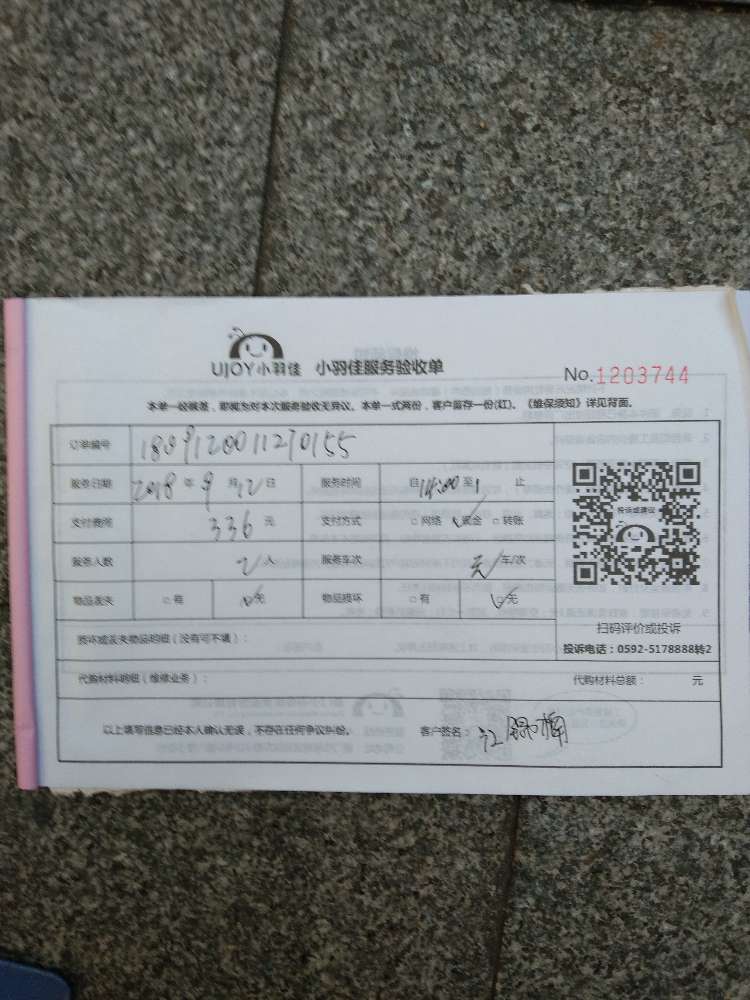 UJOY小羽佳 小羽佳服务验收单
No.1203744
本单一经核签,即视为对本次服务验收无异议。本单一式两份,客户留存一份(红)。《维保须知》详见背面。
订单编号 180912001270155
服务日期 2018年9月12日 服务时间 自14:00至 止
支付费用 336元 支付方式 □网络 □现金 □转账
服务人数 2人 服务车次 无 车/次
物品丢失 □有 □无 物品损坏 □有 □无
投诉或建议
扫码评价或投诉
投诉电话:0592-5178888转2
损坏或丢失物品明细(没有可不填):
代购材料明细(维修业务): 代购材料总额: 元
以上填写信息已经本人确认无误,不存在任何争议纠纷。 客户签名: